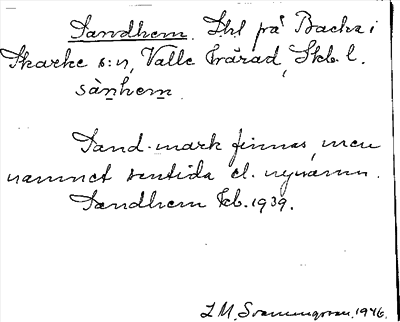 Sandhem. Lht på Backa i
Skarke s:n, Valle härad, Skb. l.
sànhem
Sand-mark finnas, men
namnet sentida el. nynamn.
Sandhem Kb. 1939.
L M. Svenungsson. 1946.